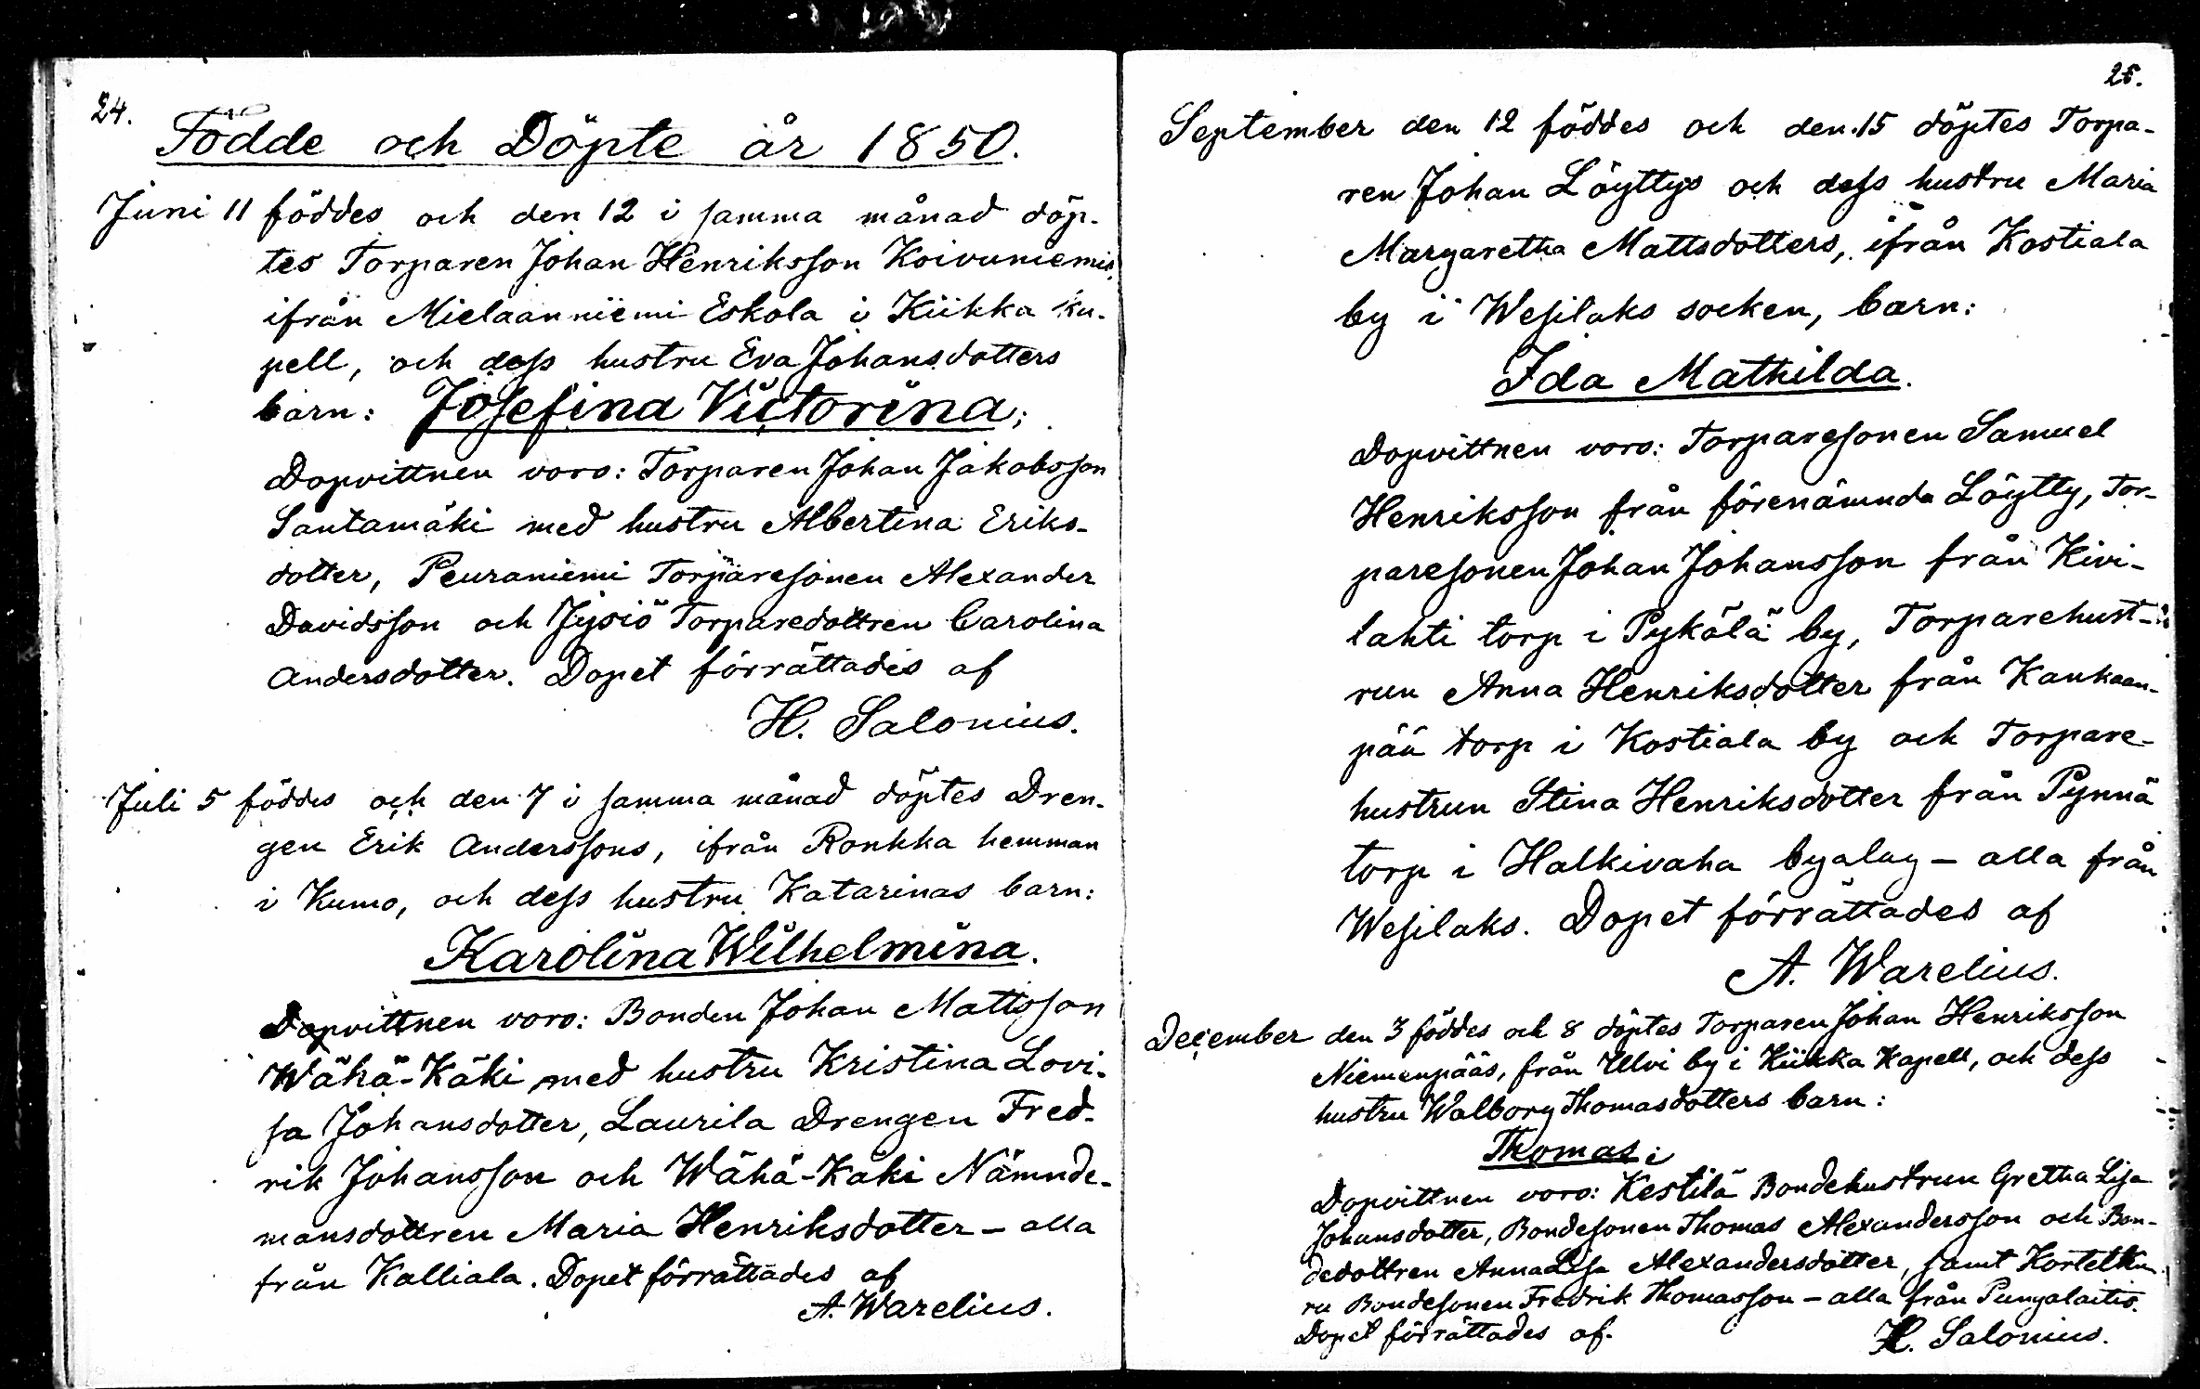 24.
Födde och Döpte år 1850.
Juni 11 föddes och den 12 i samma månad döp-
tes Torparen Johan Henriksson Koivuniemis,
ifrån Mielaanniemi Eskola i Kiikka ka-
pell, och dess hustru Eva Johansdotters
barn: Josefina Victorina;
Dopvittnen voro: Torparen Johan Jakobsson
Santamäki med hustru Albertina Eriks-
dotter, Peuraniemi Torparesonen Alexander
Davidsson och Jysiö Torparedottren Carolina
Andersdotter. Dopet förrättades af
H. Salonius.
Juli 5 föddes och den 7 i samma månad döptes Dren-
gen Erik Anderssons, ifrån Ronkka hemman
i Kumo, och dess hustru Katarinas barn:
Karolina Wilhelmina.
Dopvittnen voro: Bonden Johan Mattsson
Wähä-Käki med hustru Kristina Lovi-
sa Johansdotter, Laurila Drengen Fred-
rik Johansson och Wähä-Käki Nämnde-
mansdottren Maria Henriksdotter – alla
från Kalliala. Dopet förrättades af
A. Warelius.
25.
September den 12 föddes och den 15 döptes Torpa-
ren Johan Löyttys och dess hustru Maria
Margaretha Mattsdotters, ifrån Kostiala
by i Wesilaks socken, barn:
Ida Mathilda.
Dopvittnen voro: Torparesonen Samuel
Henriksson från förenämnda Löytty, Tor-
paresonen Johan Johansson från Kivi-
lahti torp i Pykälä by, Torparehust-
run Anna Henriksdotter från Kankaan-
pää torp i Kostiala by och Torpare-
hustrun Stina Henriksdotter från Pynnä
torp i Halkivaha byalag – alla från
Wesilaks. Dopet förrättades af
A. Warelius.
December den 3 föddes och 8 döptes Torparen Johan Henriksson
Niemenpääs, från Ulvi by i Kiikka Kapell, och dess
hustru Walborg Thomasdotters barn:
Thomas;
Dopvittnen voro: Kestilä Bondehustrun Gretha Lisa
Johansdotter, Bondesonen Thomas Alexandersson och Bon-
dedottren Anna Lisa Alexandersdotter, samt
Bondesonen Fredrik Thomasson – alla från Pungalaitis.
Dopet förrättades af.
H. Salonius.